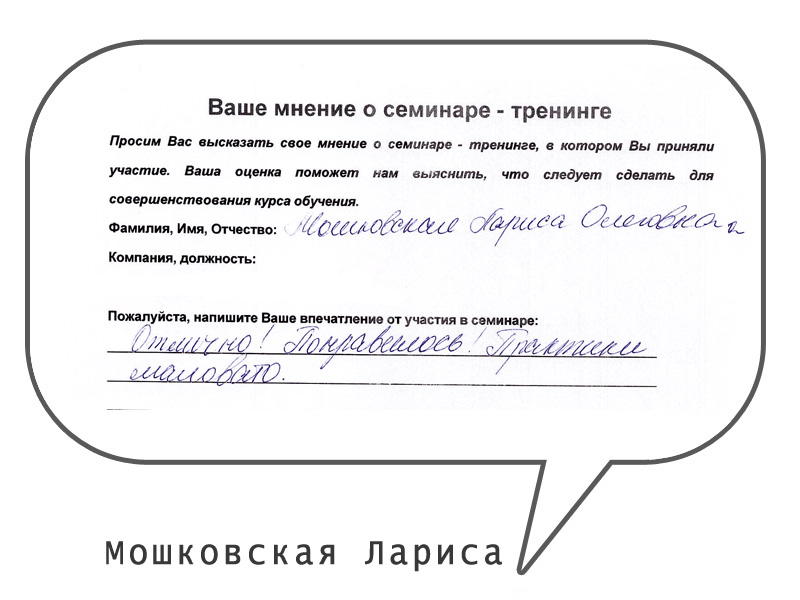 Ваше мнение о семинаре - тренинге
Просим Вас высказать свое мнение о семинаре - тренинге, в котором Вы приняли
участие. Ваша оценка поможет нам выяснить, что следует сделать для
совершенствования курса обучения.
Фамилия, Имя, Отчество: Мошковская Лариса Олеговна
Компания, должность:
Пожалуйста, напишите Ваше впечатление от участия в семинаре:
Отлично! Понравилось! Практики
маловато.
Мошковская Лариса